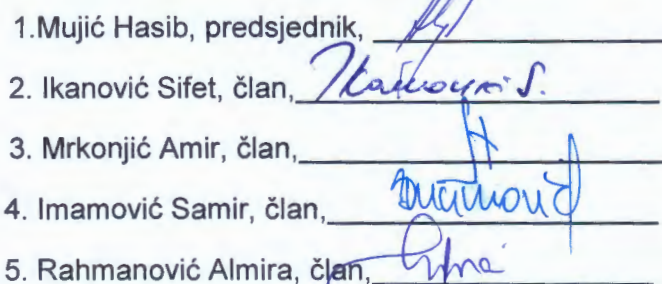 1.Mujić Hasib, predsjednik,
2. Ikanović Sifet, član, Ikanović S.
3. Mrkonjić Amir, član,
4. Imamović Samir, član,
5. Rahmanović Almira, član,